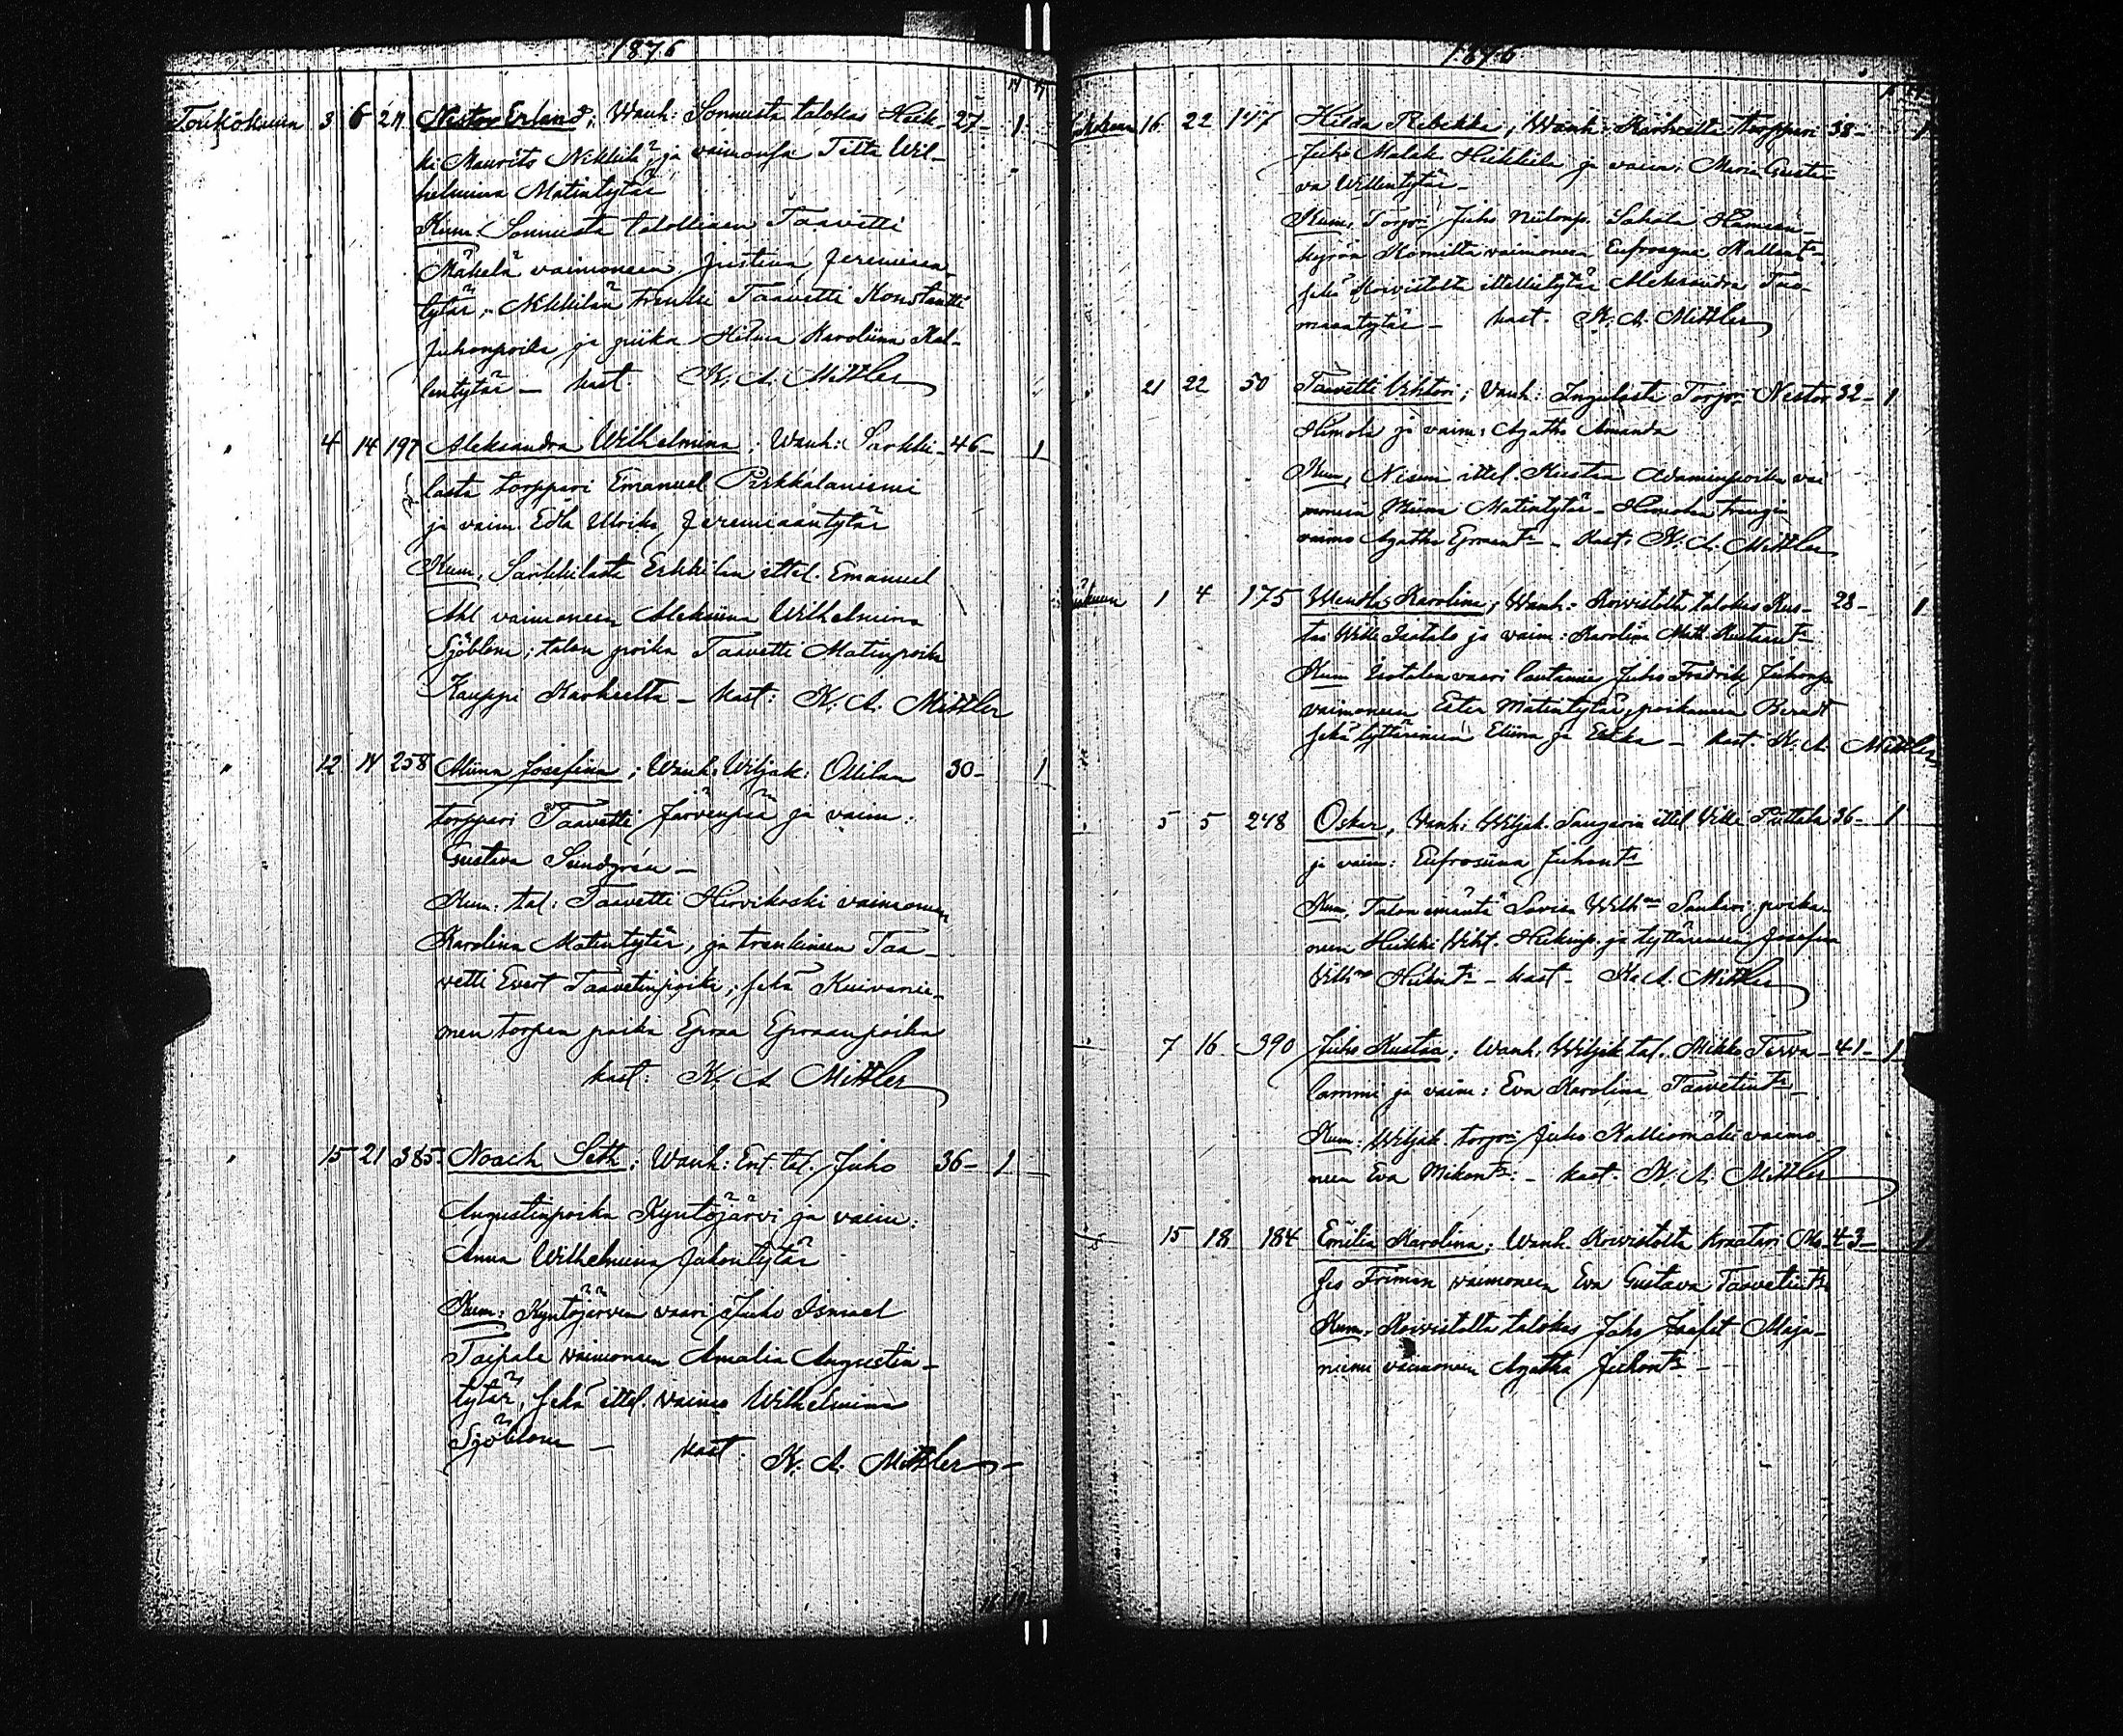 1876
Toukokuun 3 6 211 Nestor Erland; Wanh: Sonnusta talokas Heik- 27- 1
ki Maurits Nikkilä ja vaimonsa Tilta Wil-
helmiina Matintytär
Kum: Sonnusta talollinen Taavetti
Mäkelä vaimoneen Justina Jeremiaan-
tytär; Nikkilän trenki Taavetti Konstantti
Juhonpoika ja piika Hilma Karoliina Kal-
lentytär - kast. K. A. Mittler
" 4 14 197 Aleksandra Wilhelmina; Wanh: Sarkki- 46- 1
lasta torppari Emanuel Pirkkalaniemi
ja vaim. Edla Ulrika Jeremiaantytär
Kum. Sarkkilasta Erkkilän ittel. Emanuel
Ahl vaimoneen Aleksiina Wilhelmina
Sjöblom; talon poika Taavetti Matinpoika
Kauppi Karheelta - kast: K. A. Mittler
" 12 14 258 Miina Josefina; Wanh: Wiljak: Ollilan 30- 1
torppari Taavetti Järvenpää ja vaim:
Gustava Sundgrén -
Kum: tal: Taavetti Hirvikoski vaimoneen
Karolina Matintytär, ja trenkineen Taa-
vetti Evert Taavetinpoika; sekä Kuivanie-
men torpan poika Epraa Epraanpoika
kast: K. A Mittler
" 15 21 385 Noach Seth; Wanh: Ent tal. Juho 36- 1
Augustinpoika Kyntöjärvi ja vaim:
Anna Wilhelmiina Juhontytär
Kum: Kyntöjärven vaari Juho Ismael
Taipale vaimoneen Amalia Augustin-
tytär, sekä ittel. vaimo Wilhelmina
Sjöblom - kast. K. A. Mittler
1876
16 22 147 Hilda Rebekka; Wanh: Karheelta torppari 38- 1
Juho Malak. Heikkilä ja vaim. Maria Gusta-
va Willentytär -
Kum. Torp: Juho Niilonp. Sakala Hämeen-
kyrön vaimoneen Eufrosyne Kallent:
sekä Koivistolta ittellistytär Aleksandra Tuo-
maantytär - kast. K. A. Mittler
21 22 50 Taavetti Vihtori; Vanh: Ingulasta Torp: Nestor 32- 1
Himola ja vaim: Agatha Amanda
Kum, Niemi ittel. Kustaa Adaminpoika vai
moneen Miina Matintytär - Himolan
vaimo Agatha - kast: K. A. Mittler
1 4 175 Wendla Karolina; Wanh: Koivistolta talokas Kus- 28- 1
taa Wille Isotalo ja vaim: Karolina Math. Kustaant:
Kum Isotalon vaari lautamies Juho Fredrik Juhonp
vaimoneen Ester Matintytär, poikaneen Berndt
sekä tyttärineen Eliina ja - kast. K. A. Mittler
5 5 248 Oskar, Wanh: Wiljak. ittel Ville Puttala 36- 1
ja vaim: Eufrosiina Juhont:
Kum, Talon emäntä Loviisa Wilh:na Sankari poika-
neen Heikki Viht. Heikinp. ja tyttärineen Josefina
Vilh:na Heikint: - kast - K. A. Mittler
7 16 390 Juho Kustaa; Wanh. Wiljak tal. Mikko Terva- 41- 1
lammi ja vaim: Eva Karolina Taavetint:
Kum: Wiljak torp: Juho Kalliomäki vaimo
neen Eva Mikont: - kast. K. A. Mittler
15 18 184 Emilia Karolina; Wanh. Koivistolta kraatari Mo- 43- 1
ses Friman vaimoneen Eva Gustava Taavetint:
Kum. Koivistolta talokas Juho Jaafet Maja-
niemi vaimoneen Agatha Juhont: -